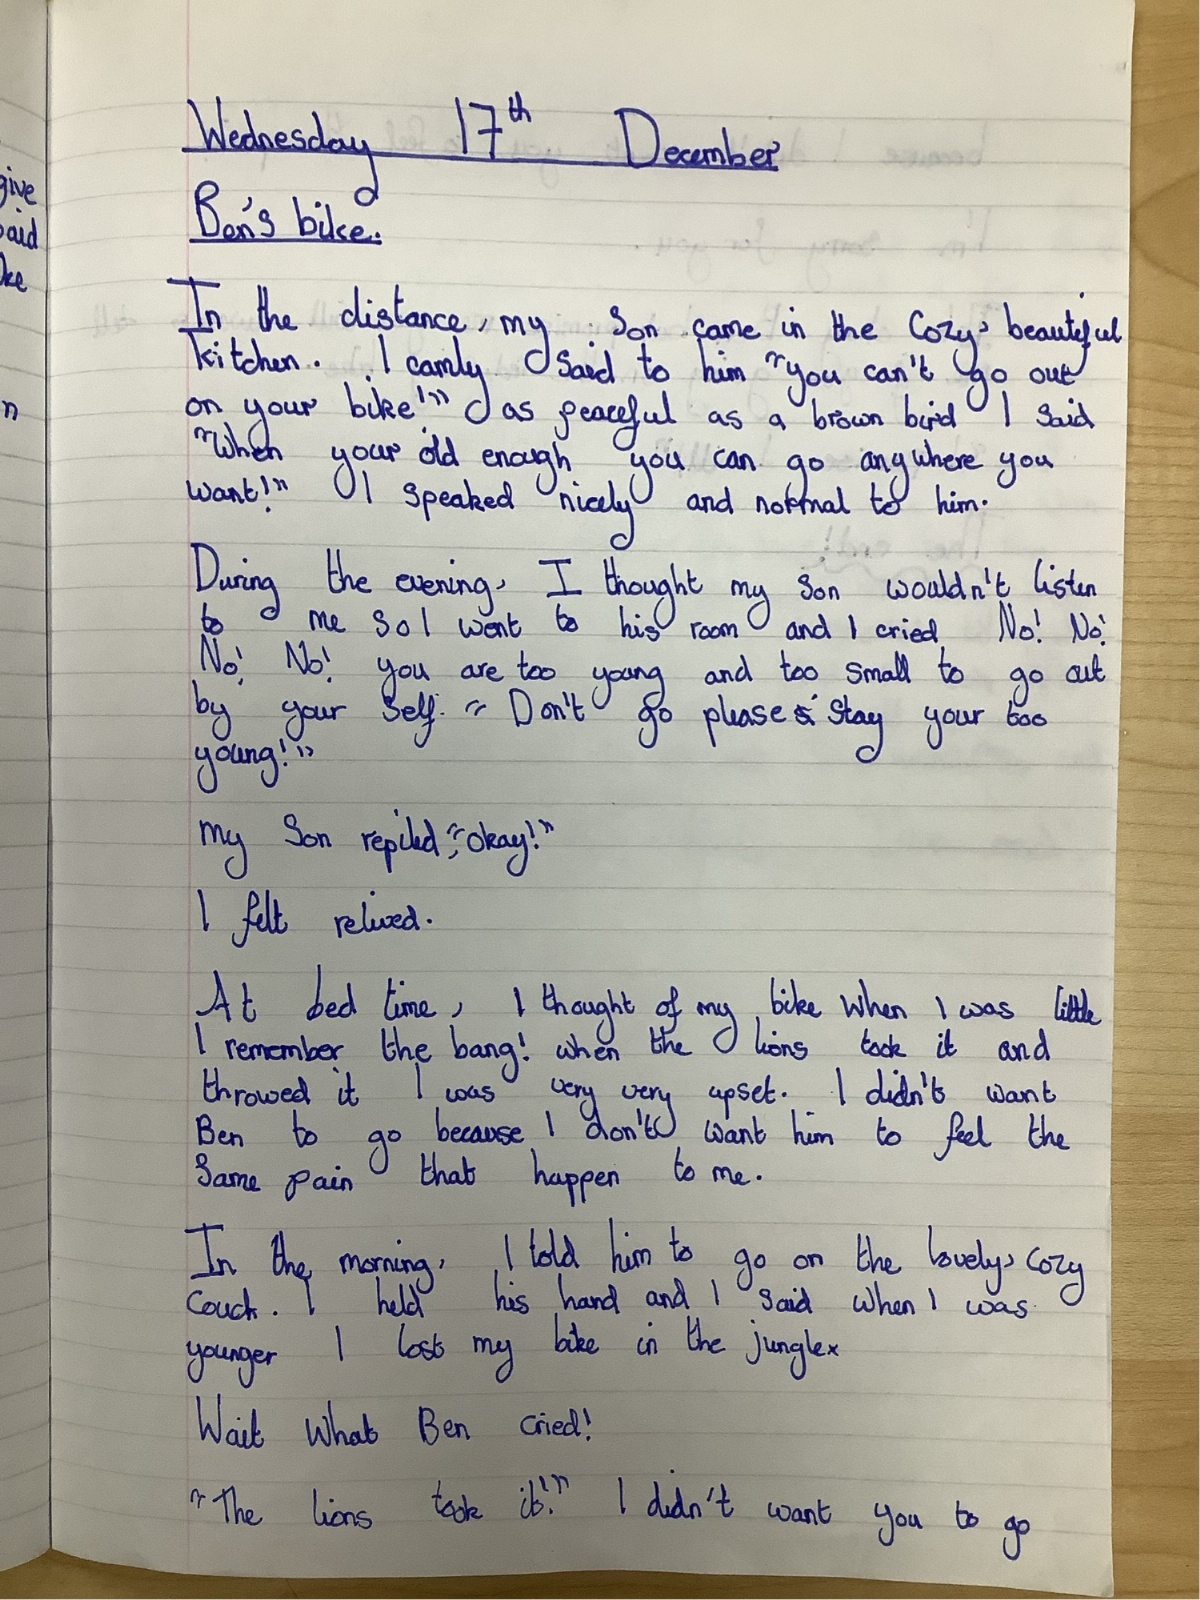 give
said
Wednesday 17th December
Ben's bike.
In the distance, my Son came in the Cozy, beauteful
kitchen. I camly Said to him "you can't go out
on your bike!" as peaceful as a brown bird I Said
"When your old enough you can go anywhere you
want!" I Speaked nicely and normal to him.
During the evening, I thought my Son wouldn't listen
to me So I went to his room and I cried No! No!
No! No! you are too young and too Small to go out
by your Self. " Don't go please & Stay your too
young!"
my Son repiled, "okay!"
I felt relived.
At bed time, I thought of my bike when I was little
I remember the bang! when the lions took it and
throwed it I was very very upset. I didn't want
Ben to go because I don't want him to feel the
Same pain that happen to me.
In the morning, I told him to go on the lovely, cozy
Couch. I held his hand and I Said when I was
younger I lost my bike in the jungle
Wait What Ben cried!
"The lions took it!" I didn't want you to go